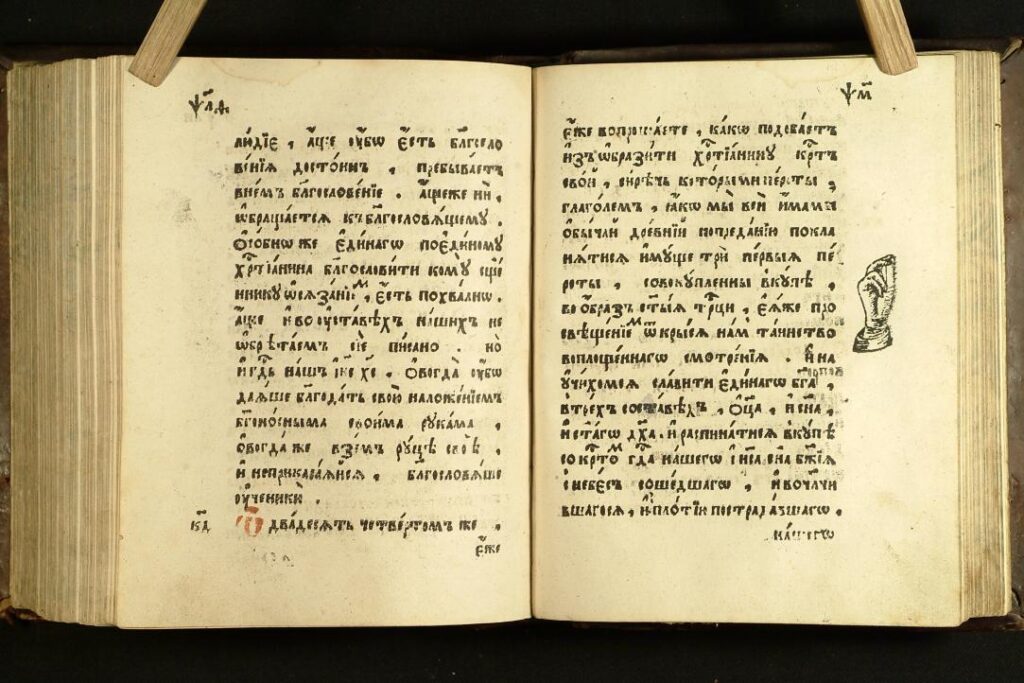 ѰЛД.
лю́дїе, а҆́ще ѹ҆́бѡ є҆́сть бл҃госло
ве́нїѧ досто́инъ, пребыва́етъ
внє́мъ бл҃гослове́нїе. а҆́щеже нѝ,
ѡ҆браща́етсѧ къ бл҃гословѧ́щему.
Осо́бнѡ же є҆ди́нагѡ по є҆ди́ному
хрⷭ҇тїа́нина бл҃гослови́ти кому̀ сщ҃е́
ннику ѡ҆сѧза́нїеⷨ, є҆́сть похва́лнѡ.
а҆́ще и҆ во ѹ҆ста́вѣхъ на́шихъ не
ѡ҆брѣта́емъ сїѐ пи́сано. но
и҆ гдⷭ҇ь на́шъ і҆и҃с х҃с. Ово́гда ѹ҆́бѡ
даѧ́ше бл҃года́ть свою̀ наложе́нїемъ
бг҃оно́сныма свои́ма рука́ма,
ово́гда же взе́мъ ру́цѣ своѣ̀,
и҆ неприкаса́ѧйсѧ, благословѧ́ше
ѹ҆ченикѝ.
к҃д Ѿ два́десѧть четве́ртомъ же,
є҆́же
ѰМ
Є҆́же вопроша́ете, ка́кѡ подоба́етъ
и҆зъѡбрази́ти хрⷭ҇тїа́нину крⷭ҇тъ
сво́й, си́рѣчь кото́рыми пе́рсты,
глаго́лемъ, ꙗ҆́кѡ мы̀ всѝ и҆́мамы
ѻ҆бы́чай дре́внїй по преда́нїи покла
нѧ́тисѧ и҆му́ще трѝ пе́рвыѧ пе́
рсты, совоку́пленны вку́пѣ,
во ѡ҆́бразъ ст҃ы́ѧ трⷪ҇цы, є҆ѧ́же про
свѣще́нїеⷨ ѿкры́сѧ на́м та́инство
воплоще́ннагѡ смотре́нїѧ. и҆ на
ѹ҆чи́хомсѧ сла́вити є҆ди́наго бг҃а,
в трє́хъ соста́вѣхъ, Оц҃а̀, и҆ сн҃а,
и҆ ст҃а́гѡ дх҃а. и҆ распина́тисѧ вку́пѣ
со крⷭ҇тоⷨ гдⷭ҇а на́шегѡ і҆и҃са, сн҃а бж҃їѧ
с небе́съ соше́дшагѡ, и҆ вочл҃чи
вшагосѧ, и҆ пло́тїю пострада́вшагѡ,
на́шегѡ